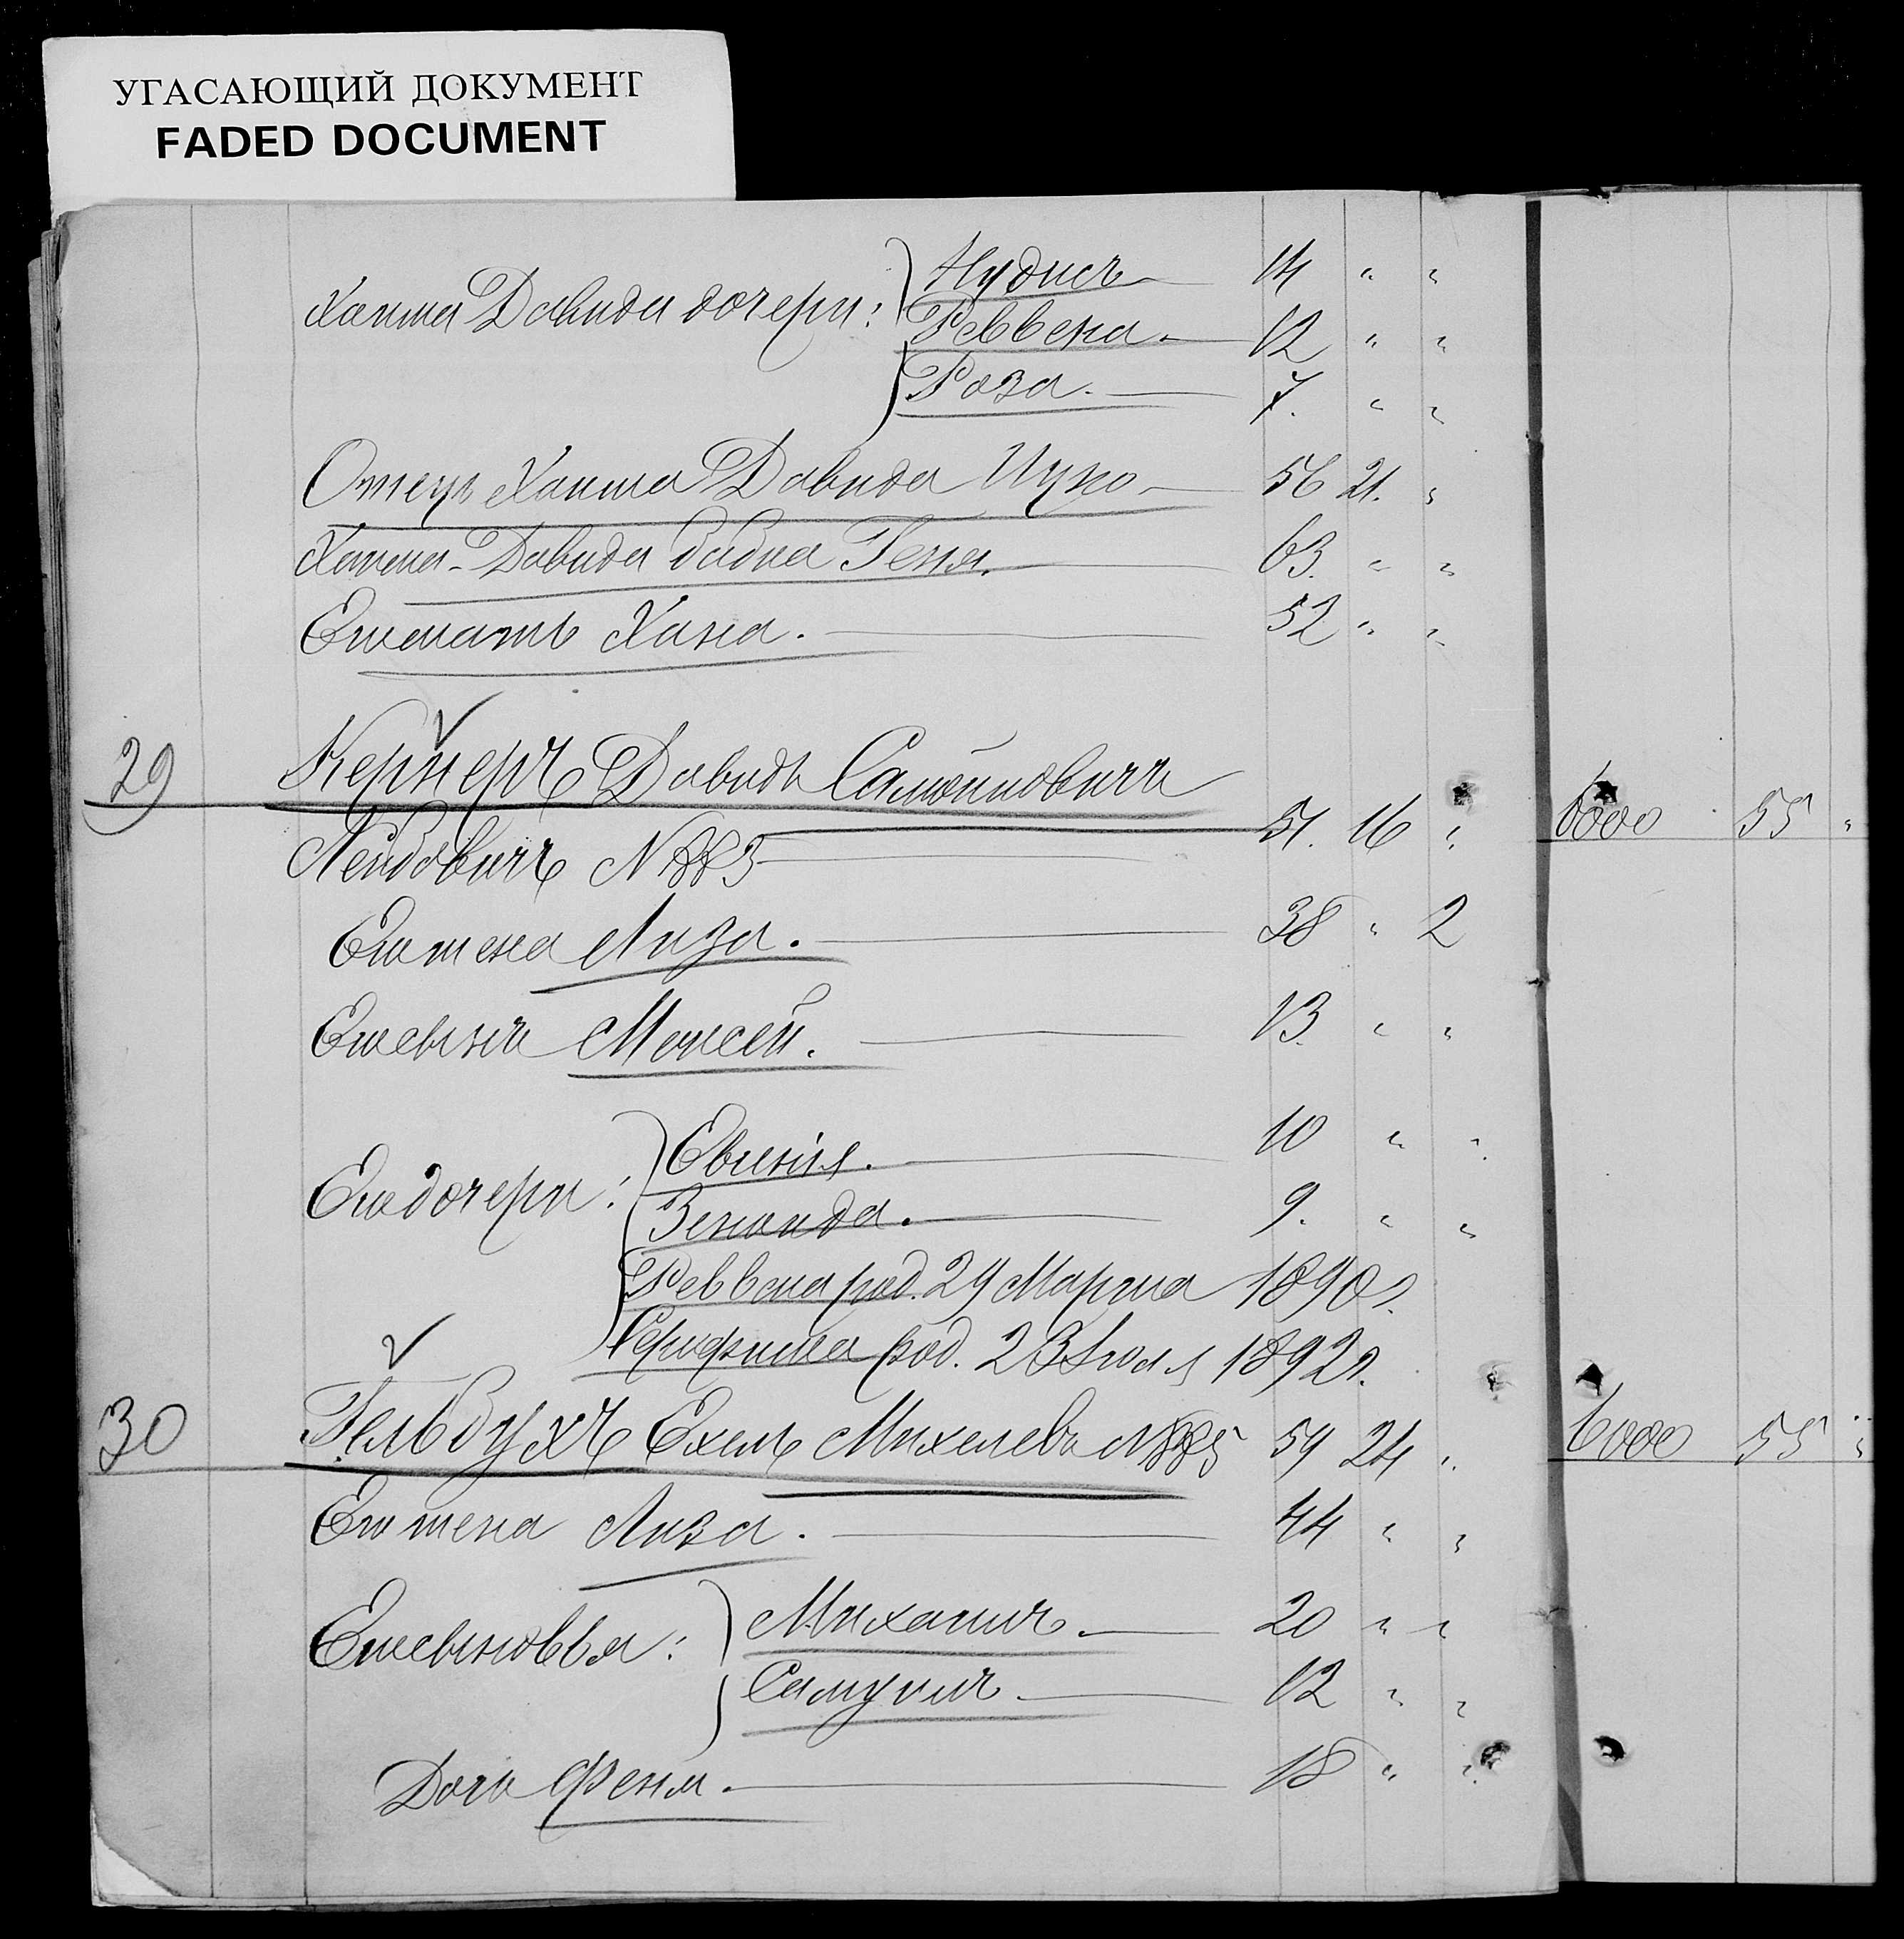 УГАСАЮЩИЙ ДОКУМЕНТ
FADED DOCUMENT
Хаима Давида дочери: Нудись 14 " "
Реввека. 12 " "
Роза. 7. " "
Отецъ Хаима Давида Ицко 56 21. "
Хаима-Давида Геня. 63. " "
Ею мать Хана. 52 " "
29 Кернеръ Давидъ Самойловичъ
Лейбовичъ N885 51. 16 " 6000 55 "
Ею жена Лиза. 38 " 2
Ею сынъ Моисей. 13. " "
Ею дочери: Евгенія. 10 " "
Зенаида. 9. " "
Реввека род. 29 Марта 1890 г.
род. 23 Іюля 1892 г.
30 Гельбухъ Ехель Михелевъ N885 59 24 " 6000 55 "
Ею жена Лиза. 44 " "
Ею сыновья: Михаилъ. 20 " "
Самуилъ. 12 " "
Дочь Феня. 18 " "